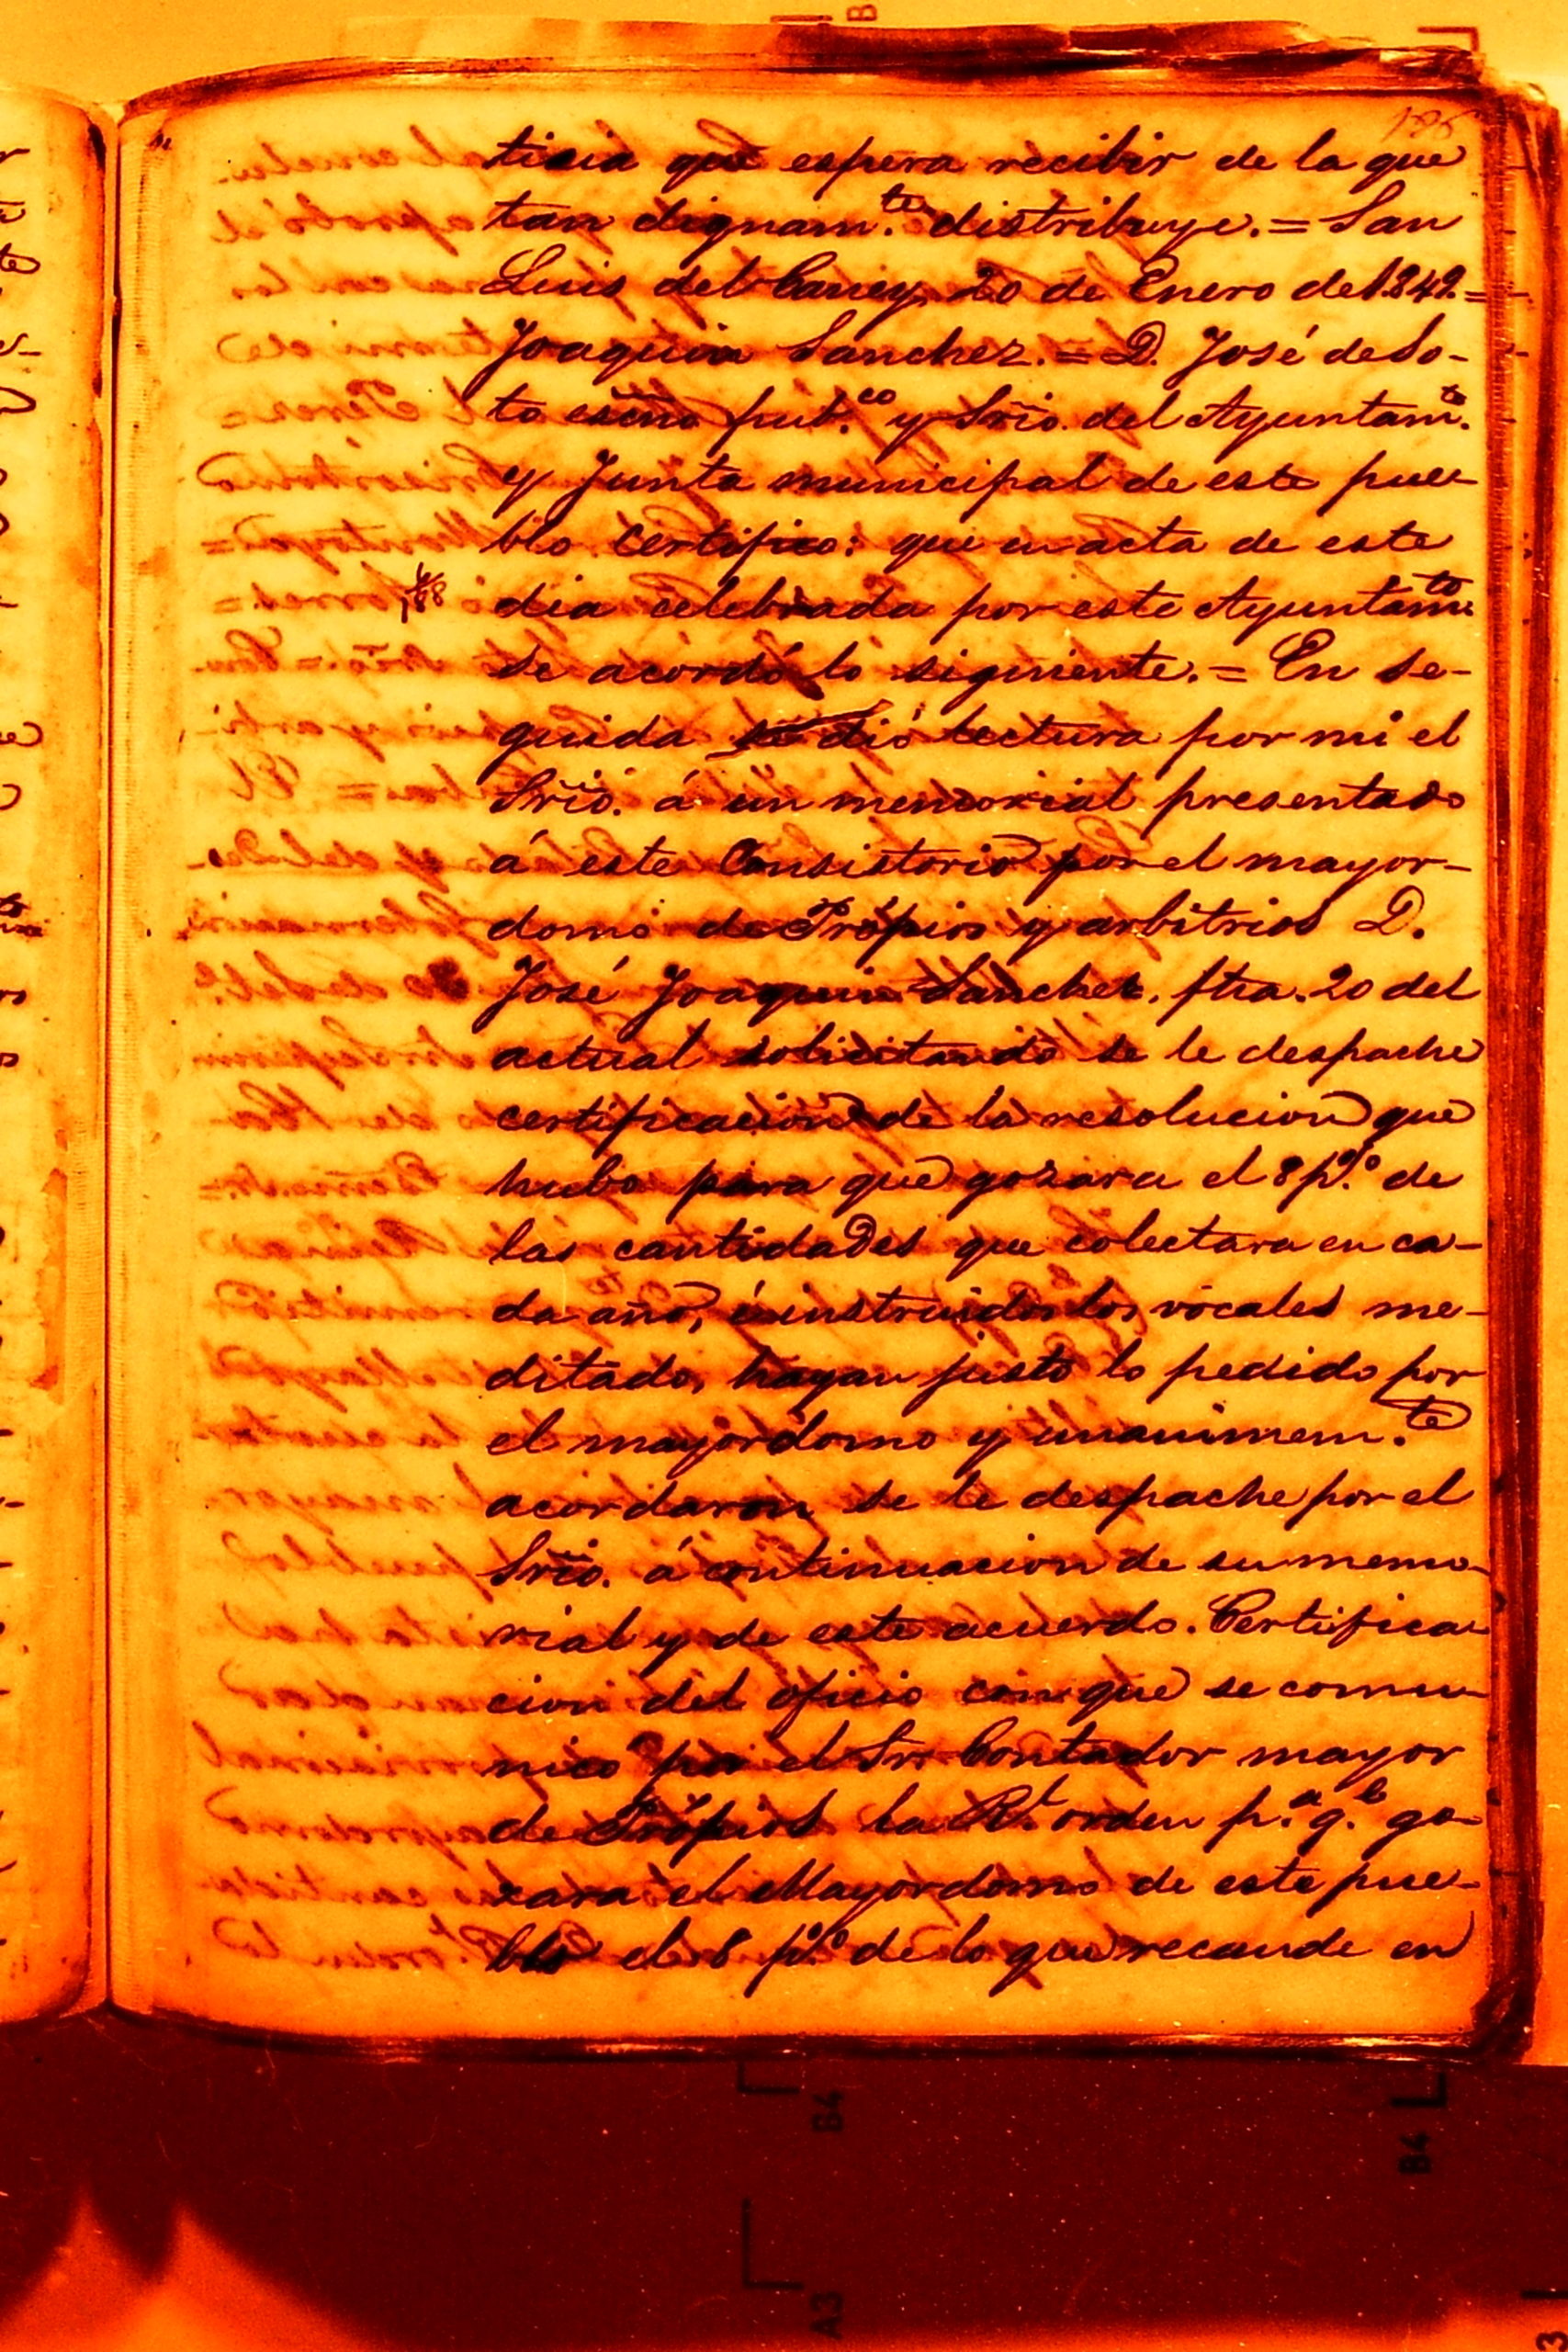 186
ticia que espera recibir de la que
tan dignam.te distribuye. = San
Luis del Caney, 20 de Enero de 1.849. =
Joaquin Sanchez. = D. José de So-
to esčno pub.co y Srio. del Ayuntam.to
y Junta municipal de este pue-
blo. Certifico: que en acta de este
dia celebrada por este Ayuntam.to
se acordó lo siguiente. = En se-
guida se dió lectura por mi el
Srio. á un memorial presentado
á este Consistorio por el mayor-
domo de Própios y arbitrios D.
José Joaquin Sanchez, ftra. 20 del
actual solicitando se le despache
certificacion de la resolucion que
hubo para que gozara el 8 p.º de
las cantidades que colectara en ca-
da año, é instruidos los vocales me-
ditado, hayan justo lo pedido por
el mayordomo y unanimem.te
acordaron se le despache por el
Srio. á continuacion de su memo-
rial y de este acuerdo. Certifica-
cion del oficio con que se comu-
nicó por el Sr. Contador mayor
de Própios la R.l orden p.a q.e go-
zara el Mayordomo de este pue-
blo el 8 p.º de lo que recaude en
B4
B4
A3